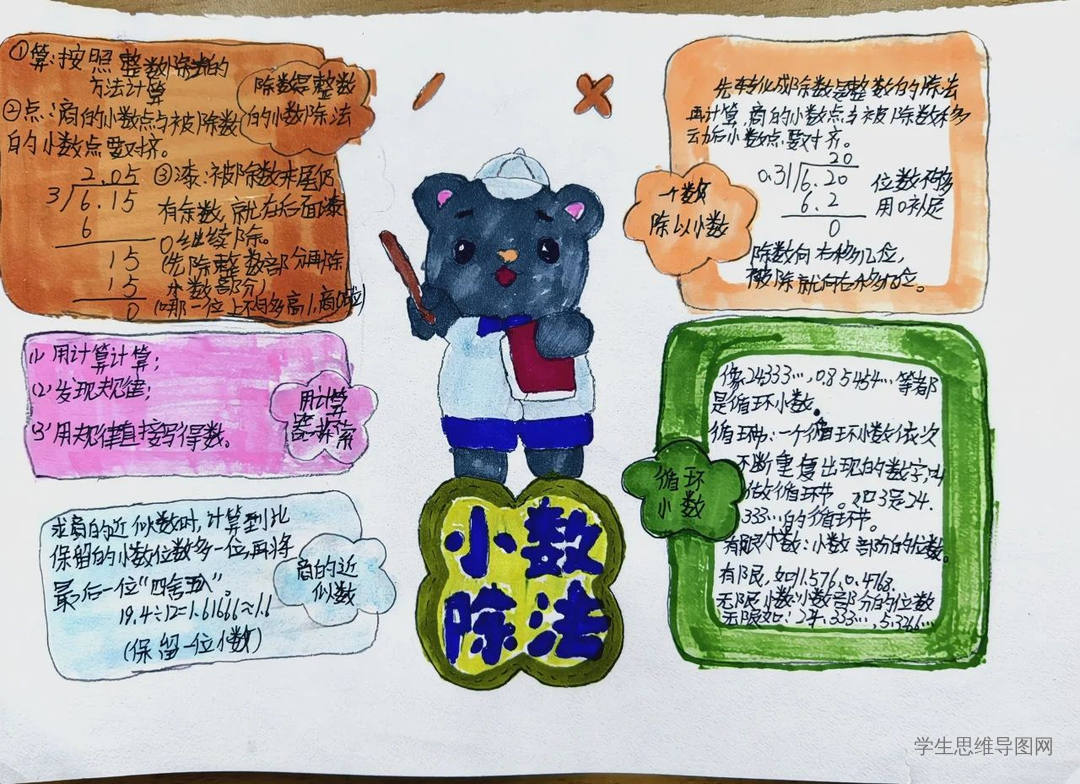 ①算:按照整数除法的
方法计算
②点:商的小数点与被除数
的小数点要对齐。
2.05
3/6.15
6
15
15
0
③漆:被除数末尾仍
有余数,就在后面漆
0继续除。
(先除整数部分再除
小数部分)
(哪一位上不
除数是整数
的小数除法
(1)用计算计算;
(2)发现规律;
(3)用规律直接写得数。
用计算
探索
求商的近似数时,计算到比
保留的小数位数多一位,再将
最后一位“四舍五入”。
19.4÷12=1.61666≈1.6
(保留一位小数)
商的近
似数
小数
除法
先转化成除数是整数的除法
再计算,商的小数点与被除数移
动后小数点要对齐。
20
0.31/6.20
6.2
0
位数不够
用0补足
除数向右移几位,
被除就向右移几位。
一个数
除以小数
像2.4333…,0.85454…等都
是循环小数。
循环节:一个循环小数依次
不断重复出现的数字,叫
做循环节。如3是24.
333…的循环节。
有限小数:小数部分的位数
有限,如1.576,0.4763.
无限小数:小数部分的位数
无限如:24.333…,5.3266…
循环
小数
学生思维导图网